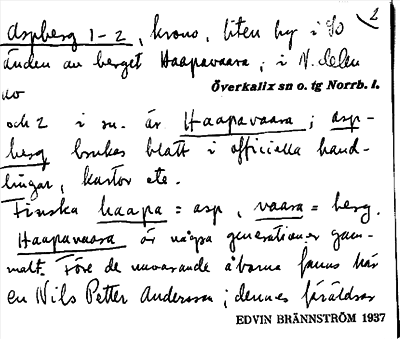 2
Aspberg 1-2, krono, liten by i SO
änden av berget Haapavaara, i N. delen
av
Överkalix sn o. tg Norrb. l.
och 2 i su. är Haapavaara; asp-
berg brukas blott i officiella hand-
lingar, kartor etc.
Finska haapa = asp, vaara = berg.
Haapavaara är några generationer gam-
malt. Före de nuvarande åborna fanns här
en Nils Petter Andersson; dennes föräldrar
EDVIN BRÄNNSTRÖM 1937